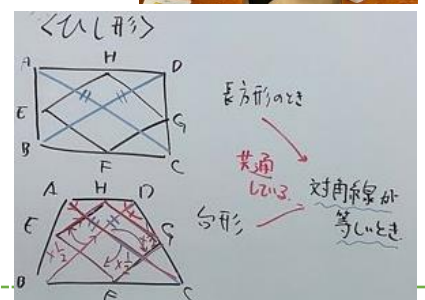 <ひし形>
A H D
E G
B F C
長方形のとき
共通
している
対角線が
等しいとき
台形
A H D
E G
×1/2 ×1/2 ×1/2
B F C